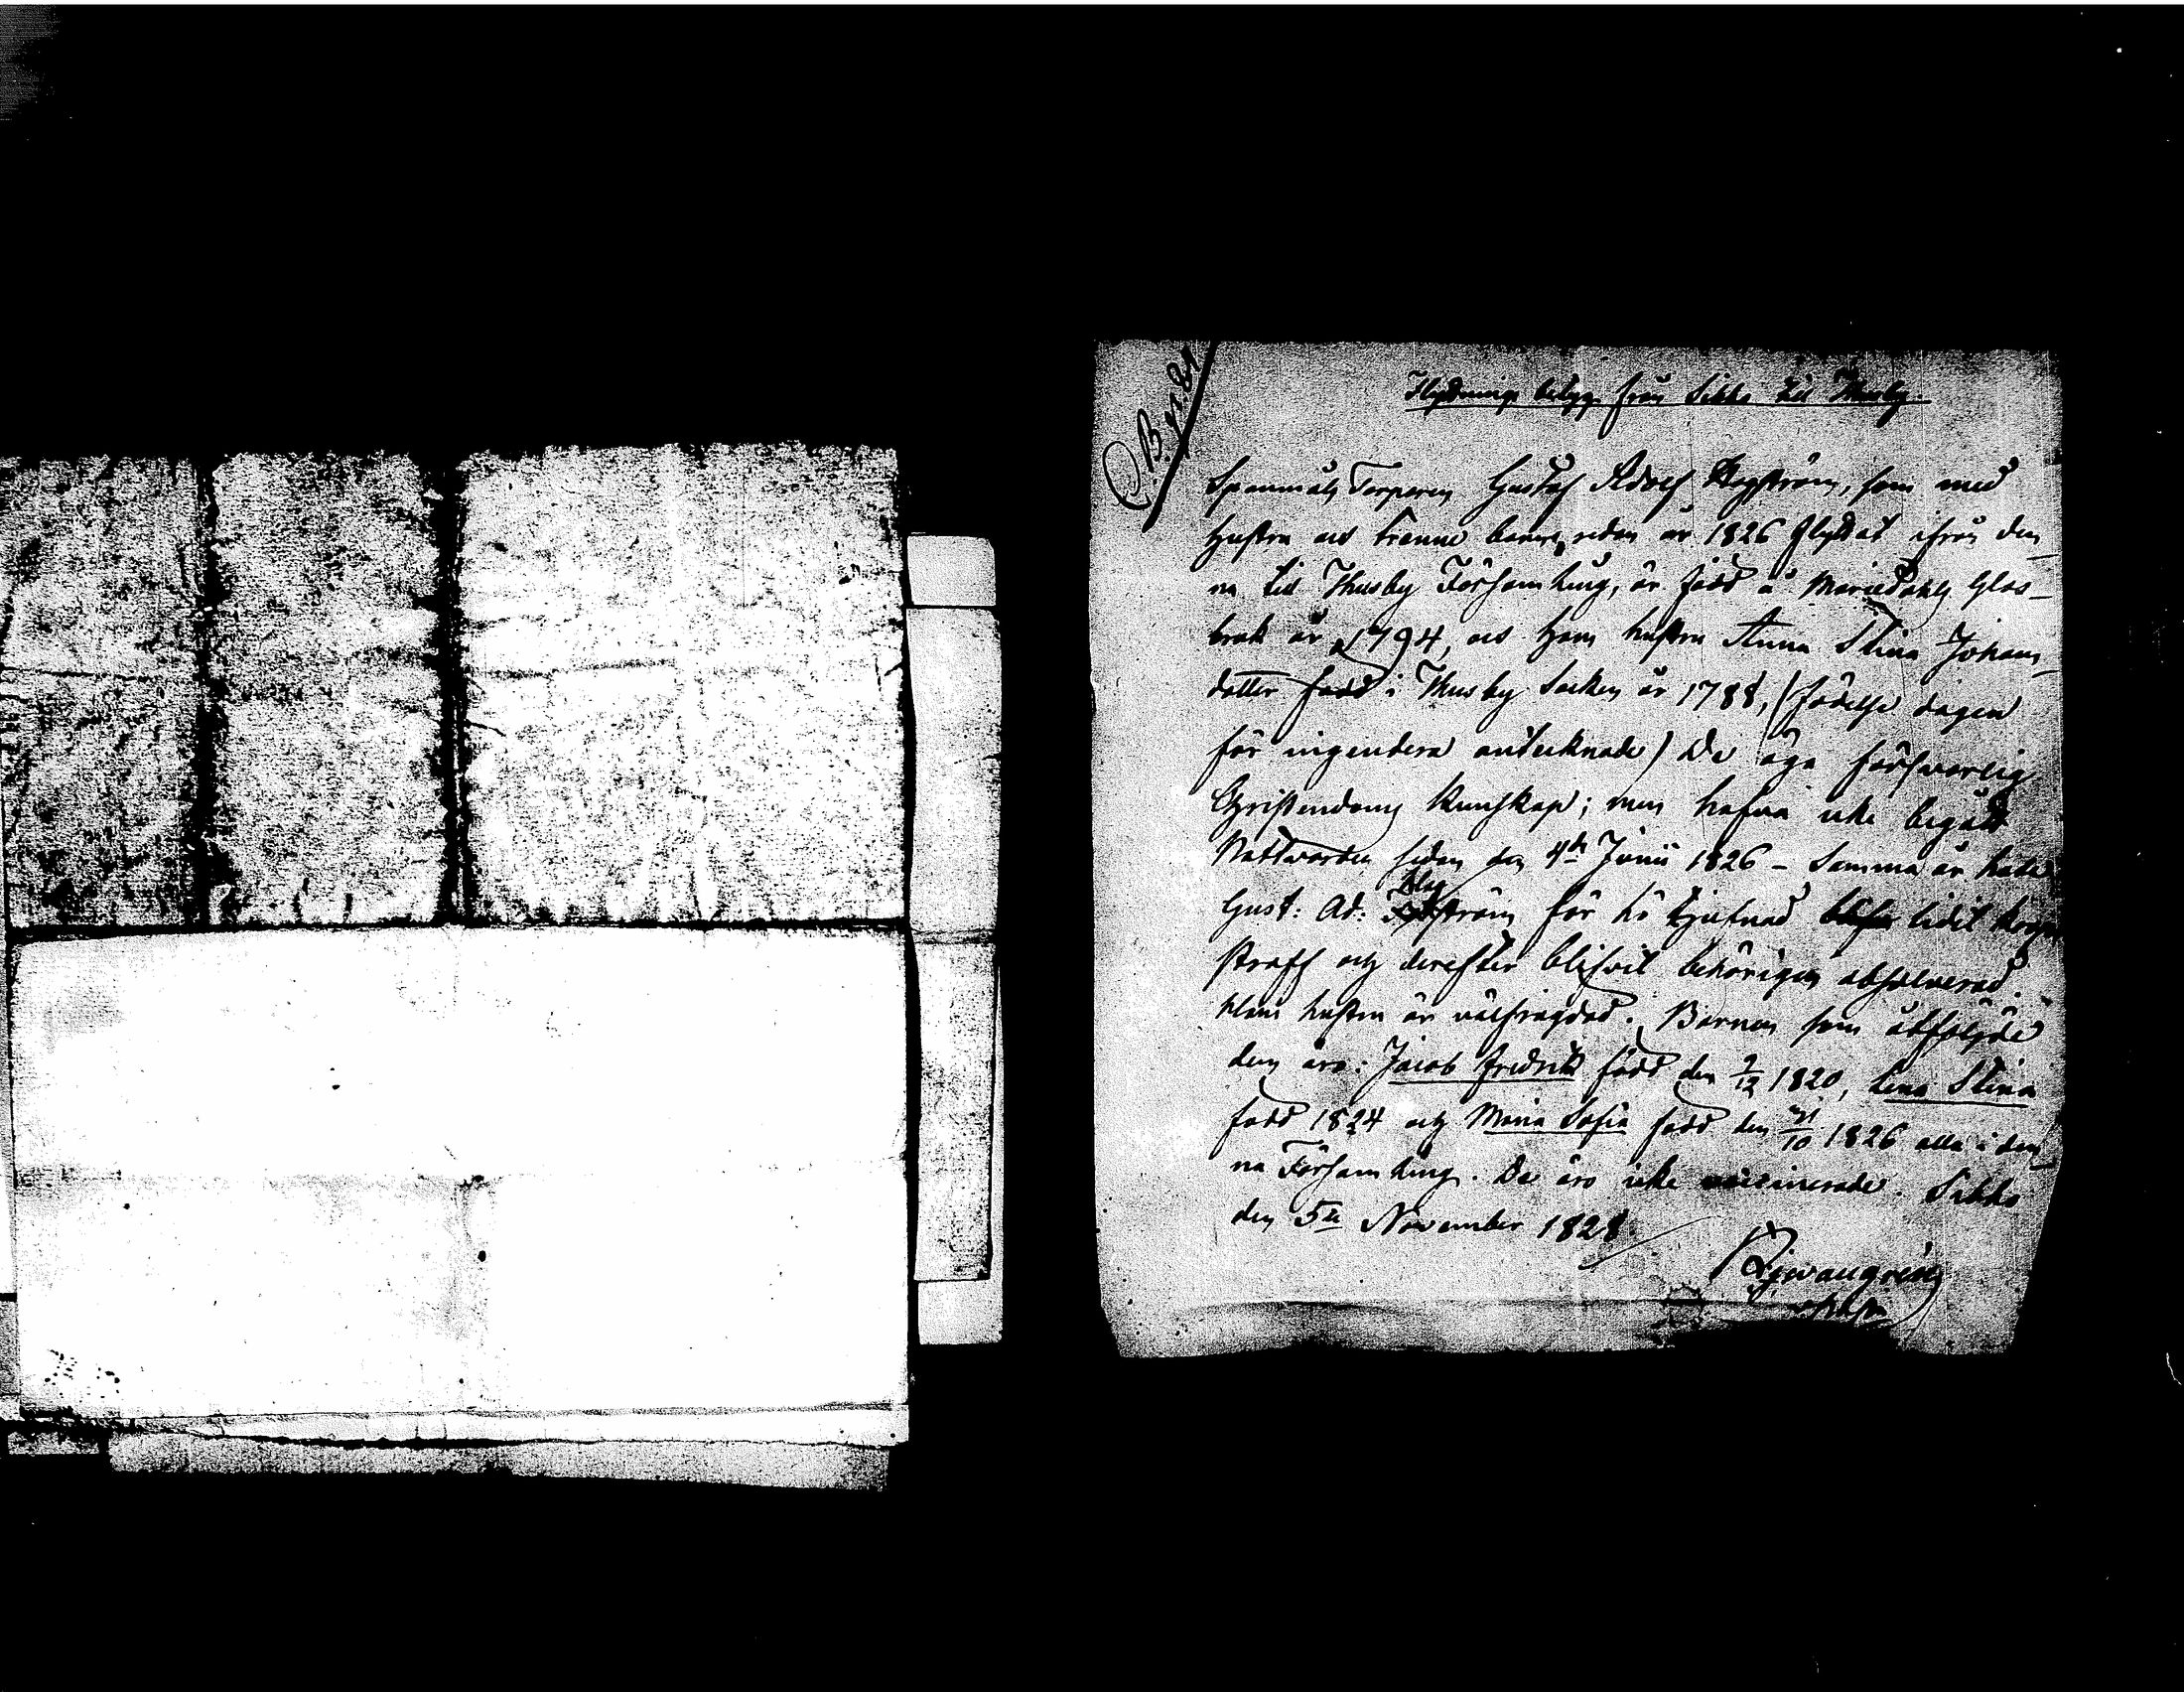 C.B. p. 21
Flyttnings betyg från Sibbo till Thusby
Spanmåls Torparen Gustaf Adolf Klogström, som med
hustru och trenne barn, redan år 1826 flyttat ifrån den-
na till Thusby Församling, är född å Mariedahls Glas-
bruk år 1794, och hans hustru Anna Stina Johans-
dotter född i Thusby Socken år 1788, (födelse dagen
för ingendera antecknade) De äga försvarlig
Christendoms kunskap; men hafva icke begått
Nattvarden sedan den 4de Junii 1826 – Samma år hade
Gust: Ad: Klogström för hö tjufnad lidit kropps
straff och derefter blifvit behörigen absolverad.
Hans hustru är välfrägdad. Barnen som åtföljde
dem äro: Jacob Fredrik född den 2/12 1820, Lena Stina
född 1824 och Maria Sofia född den 31/10 1826 alla i den-
na Församling. De äro icke vaccinerade. Sibbo
den 5te November 1828.